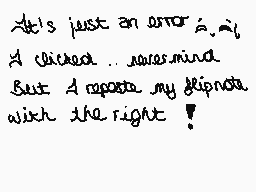 It's just an error ;_;
I clicked .. nevermind
But I reposte my flipnote
with the right !